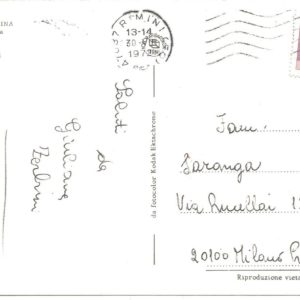 INA
RIMINI
13-14
30-
197
Saluti
da
Giuliana
da fotocolor Kodak Ektachrome
Fam.
Faranga
Via Rucellai
20100 Milano
Riproduzione vieta